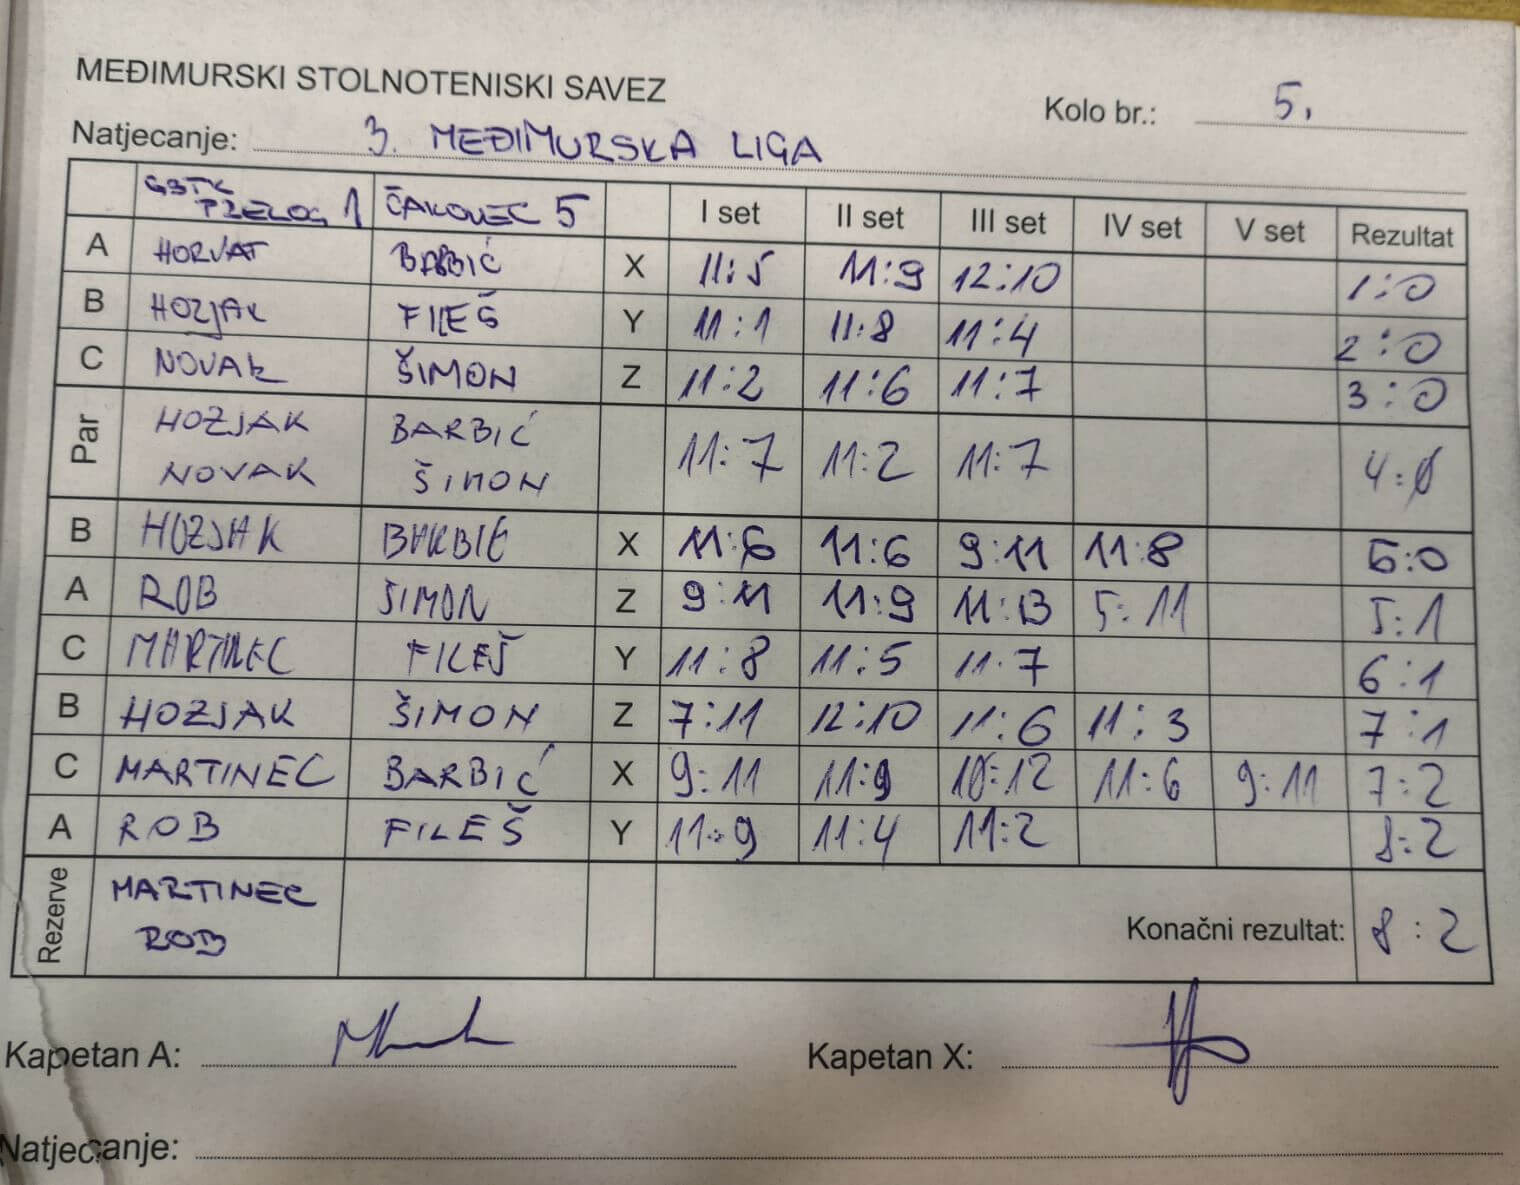 MEĐIMURSKI STOLNOTENISKI SAVEZ
Kolo br.: 5.
Natjecanje: 3. MEĐIMURSKA LIGA
GSTK PRELOG 1 ČAKOVEC 5 I set II set III set IV set V set Rezultat
A HORVAT BARBIĆ X 11:5 11:9 12:10 1:0
B HOZJAK FILEŠ Y 11:1 11:8 11:4 2:0
C NOVAK ŠIMON Z 11:2 11:6 11:7 3:0
Par HOZJAK BARBIĆ 11:7 11:2 11:7 4:0
NOVAK ŠIMON
B HOZJAK BARBIĆ X 11:6 11:6 9:11 11:8 5:0
A ROB ŠIMON Z 9:11 11:9 11:13 5:11 5:1
C MARTINEC FILEŠ Y 11:8 11:5 11:7 6:1
B HOZJAK ŠIMON Z 7:11 12:10 11:6 11:3 7:1
C MARTINEC BARBIĆ X 9:11 11:9 10:12 11:6 9:11 7:2
A ROB FILEŠ Y 11:9 11:4 11:2 8:2
Rezerve MARTINEC
ROB Konačni rezultat: 8:2
Kapetan A: Kapetan X:
Natjecanje: